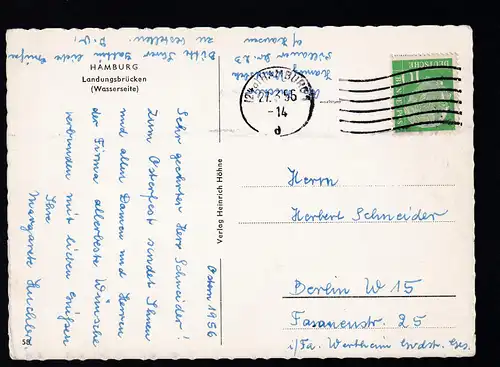 HAMBURG
Landungsbrücken
(Wasserseite)
Bitte Ihrer Gattin liebe Grüße
zu bestellen. D. O.
HAMBURG
27. 3. 56
-14
d
DEUTSCHE
Verlag Heinrich Höhne
Ostern 1956
Sehr geehrter Herr Schneider!
Zum Osterfest sendet Ihnen
und allen Damen und Herren
der Firma allerbeste Wünsche
verbunden mit lieben Grüßen
Ihre
Margarete
Herrn
Herbert Schneider
Berlin W 15
Fasanenstr. 25
i/Fa. Wertheim Grdst. Ges.
58